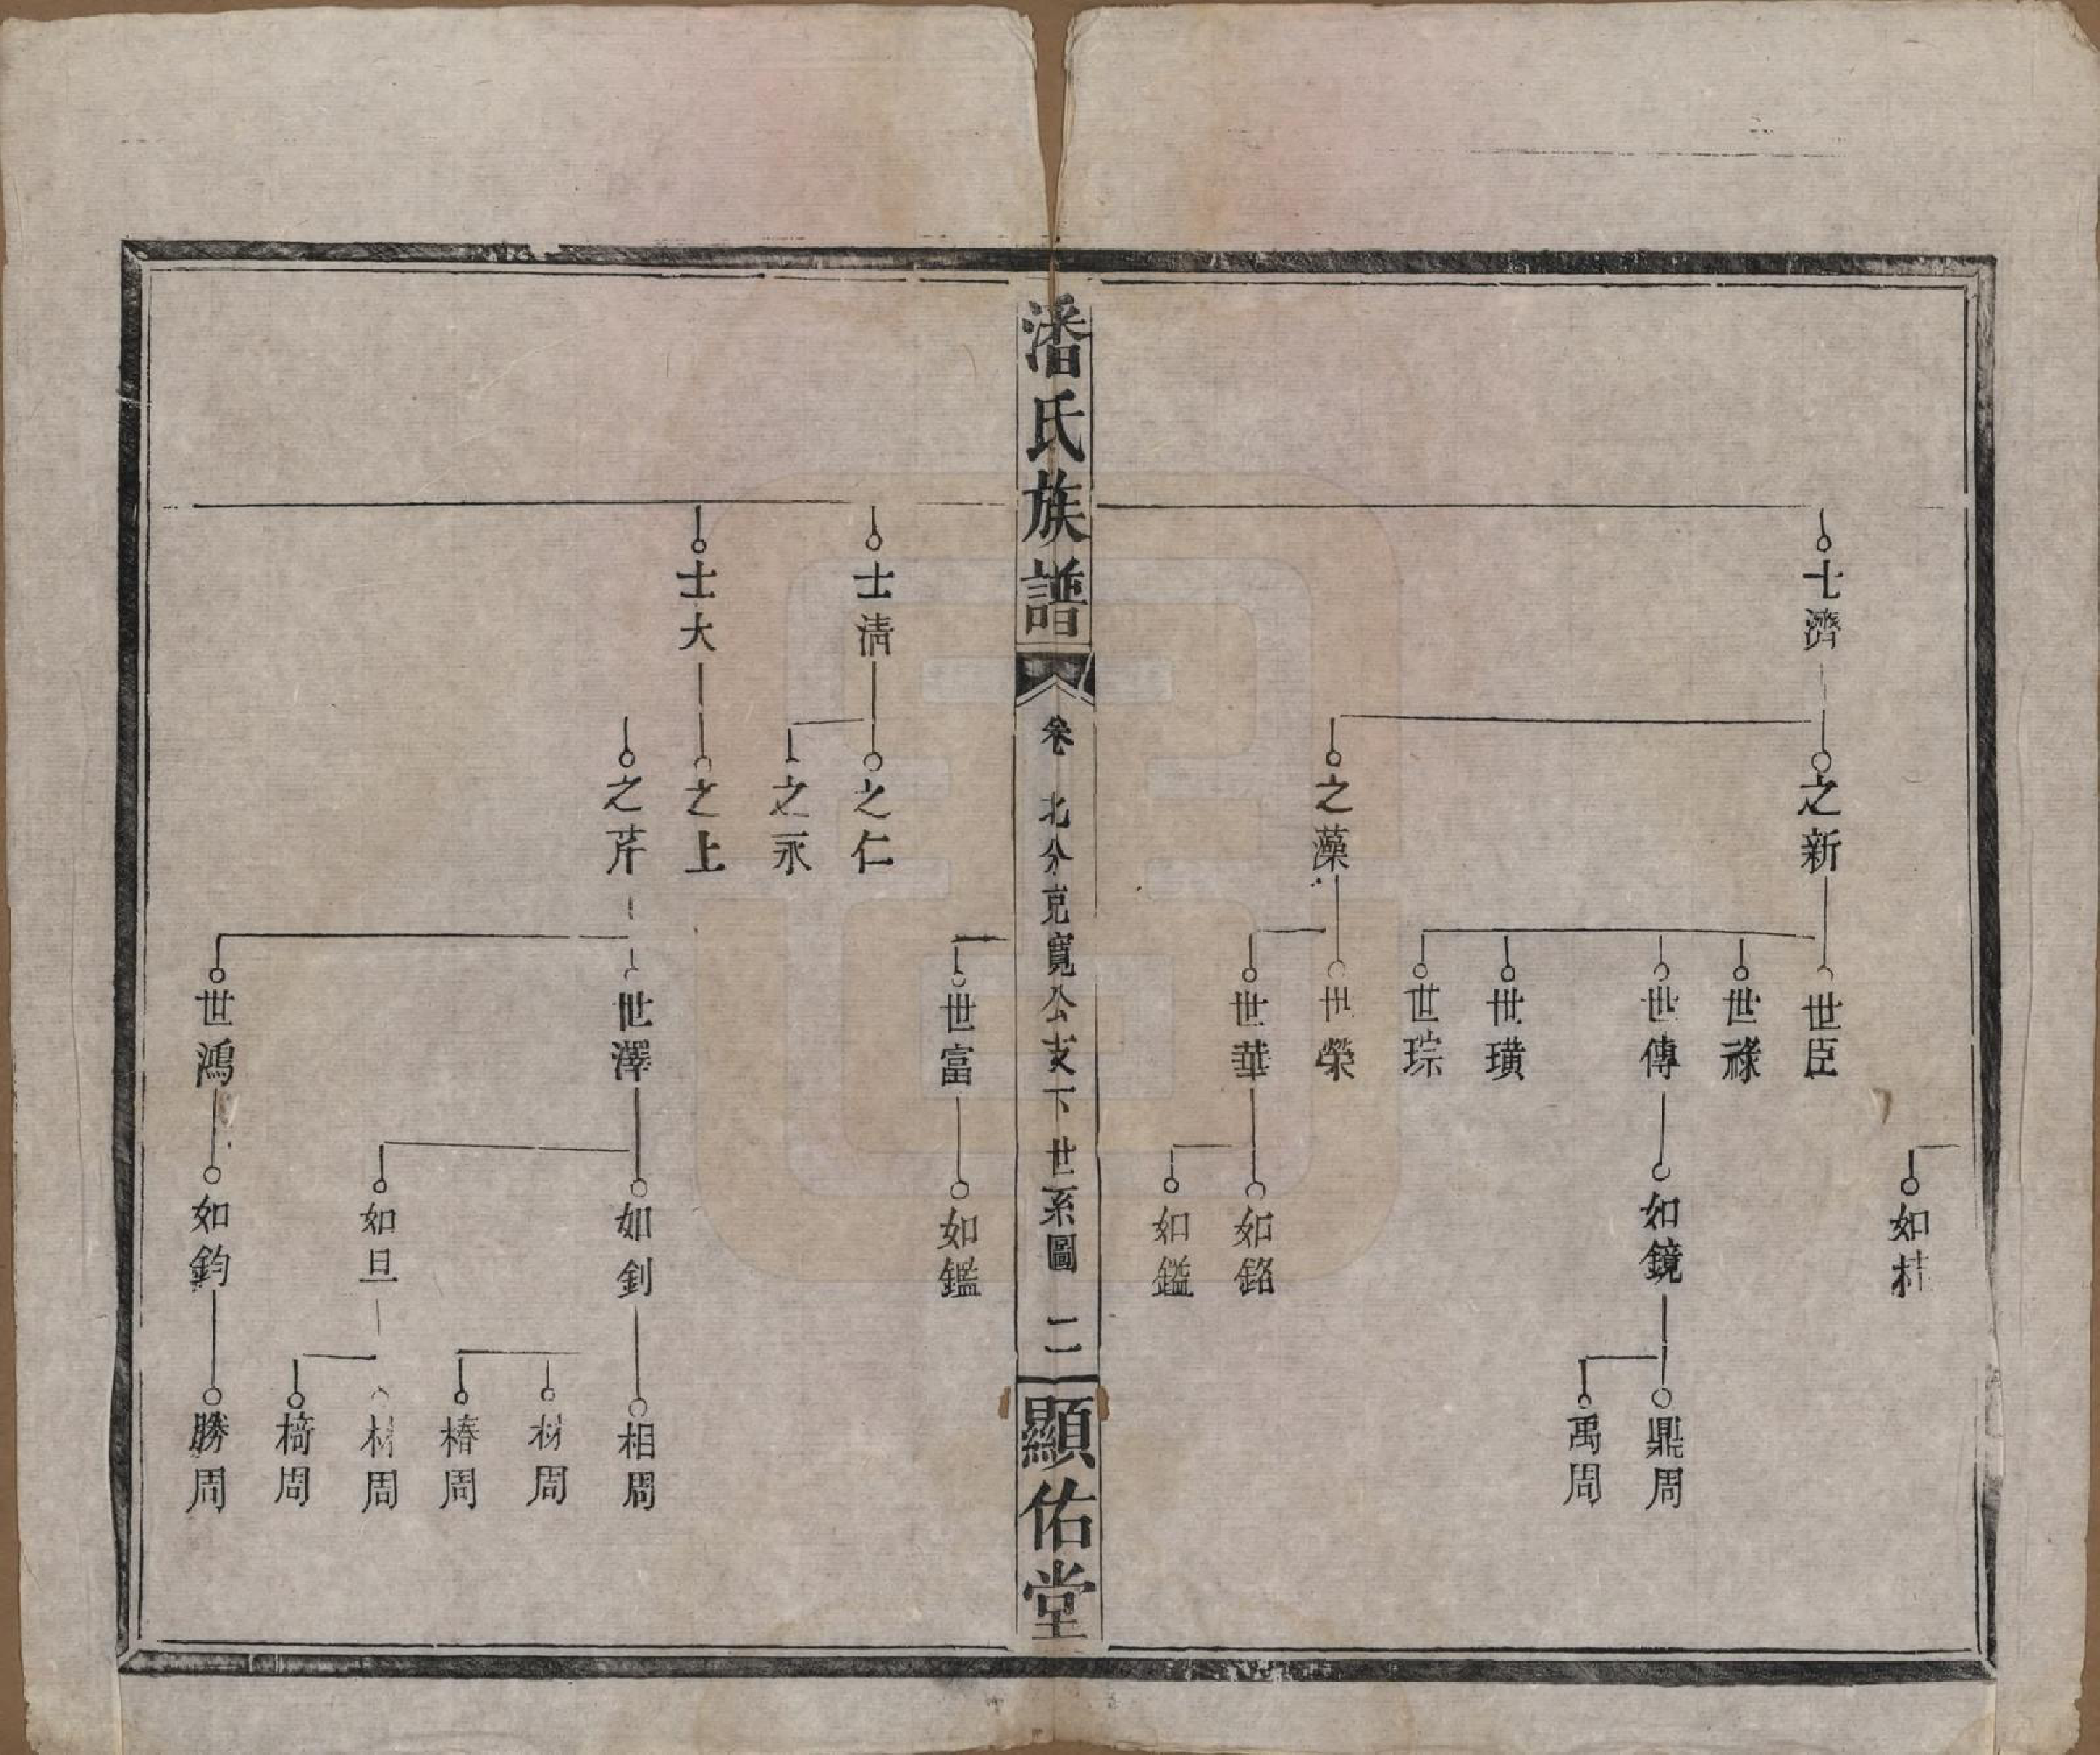 如桂
士濟
之新
世臣
世祿
世傳
如鏡
鼎周
禹周
世璜
世琮
之藻
世榮
世華
如銘
如鎰
潘氏族譜
卷
北分克寬公支下世系圖
二
顯佑堂
世富
如鑑
士清
之仁
之永
士大
之上
之芹
世澤
如釗
相周
材周
椿周
如旦
材周
椅周
世鴻
如鈞
勝周